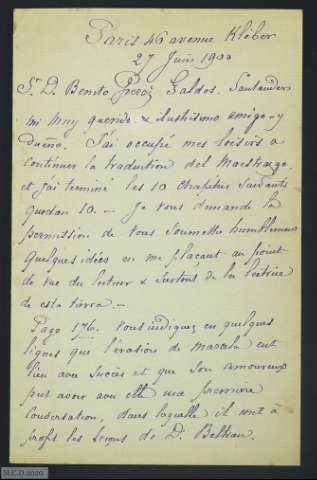 Paris 46 avenue Kléber
27 Juin 1900
Sr. D. Benito Perez Galdos. Santander
mi muy querido & ilustrisimo amigo y
dueño. J'ai occupé mes loisirs a
continuer la traduction del Maestrazgo
et j'ai terminé les 10 chapitres suivants
quedan 10. — Je vous demande la
permission de vous soumettre humblement
quelques idées en me plaçant au point
de vue du lecteur & surtout de la lectrice
de esta tierra. —
Page 176. Vous indiquez en quelques
lignes que l'évasion de Marcela eut
lieu avec succès et que son amoureux
put avoir avec elle une première
conversation, dans laquelle il mit à
profit les leçons de D. Beltran.
M.C.D. 2020